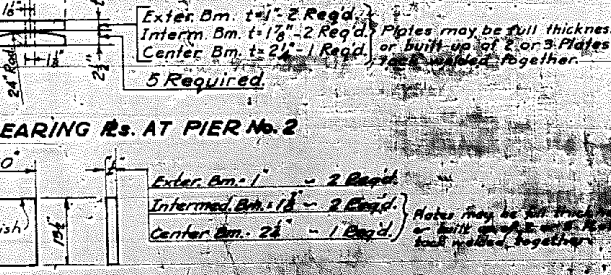 Exter. Bm. t=1" - 2 Req'd.
Interm. Bm. t=1⅝" - 2 Req'd.
Center Bm. t=2¼" - 1 Req'd.
Plates may be full thickness
or built-up of 2 or 3 Plates
tack welded together.
24" Rad.
5 Required.
EARING ℞s. AT PIER No. 2
Exter. Bm. - 1" - 2 Req'd.
Intermed. Bm. - - 2 Req'd.
Center Bm. - 2¼" - 1 Req'd.
Plates may be full thick
or built up of 2 or 3 Plates
tack welded together
ish